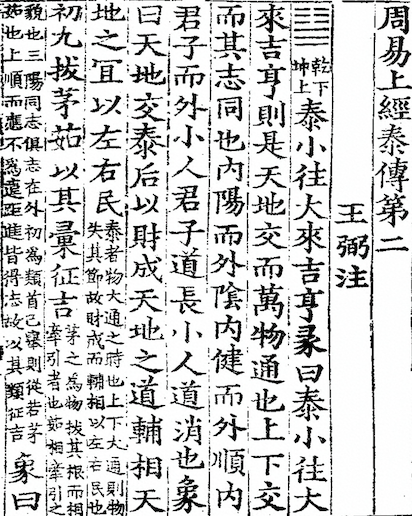 周易上經泰傳第二
王弼注
䷊乾下坤上泰小往大來吉亨彖曰泰小往大
來吉亨則是天地交而萬物通也上下交
而其志同也內陽而外陰內健而外順內
君子而外小人君子道長小人道消也象
曰天地交泰后以財成天地之道輔相天
地之冝以左右民泰者物大通之時也上下大通則物失其節故財成而輔相以左右民也
初九拔茅茹以其彙征吉茅之為物拔其根而相牽引者也茹相牽引之
貌也三陽同志俱志在外初為類首己舉則從若茅茹也上順而應不為違距進皆得志故以其類征吉象曰